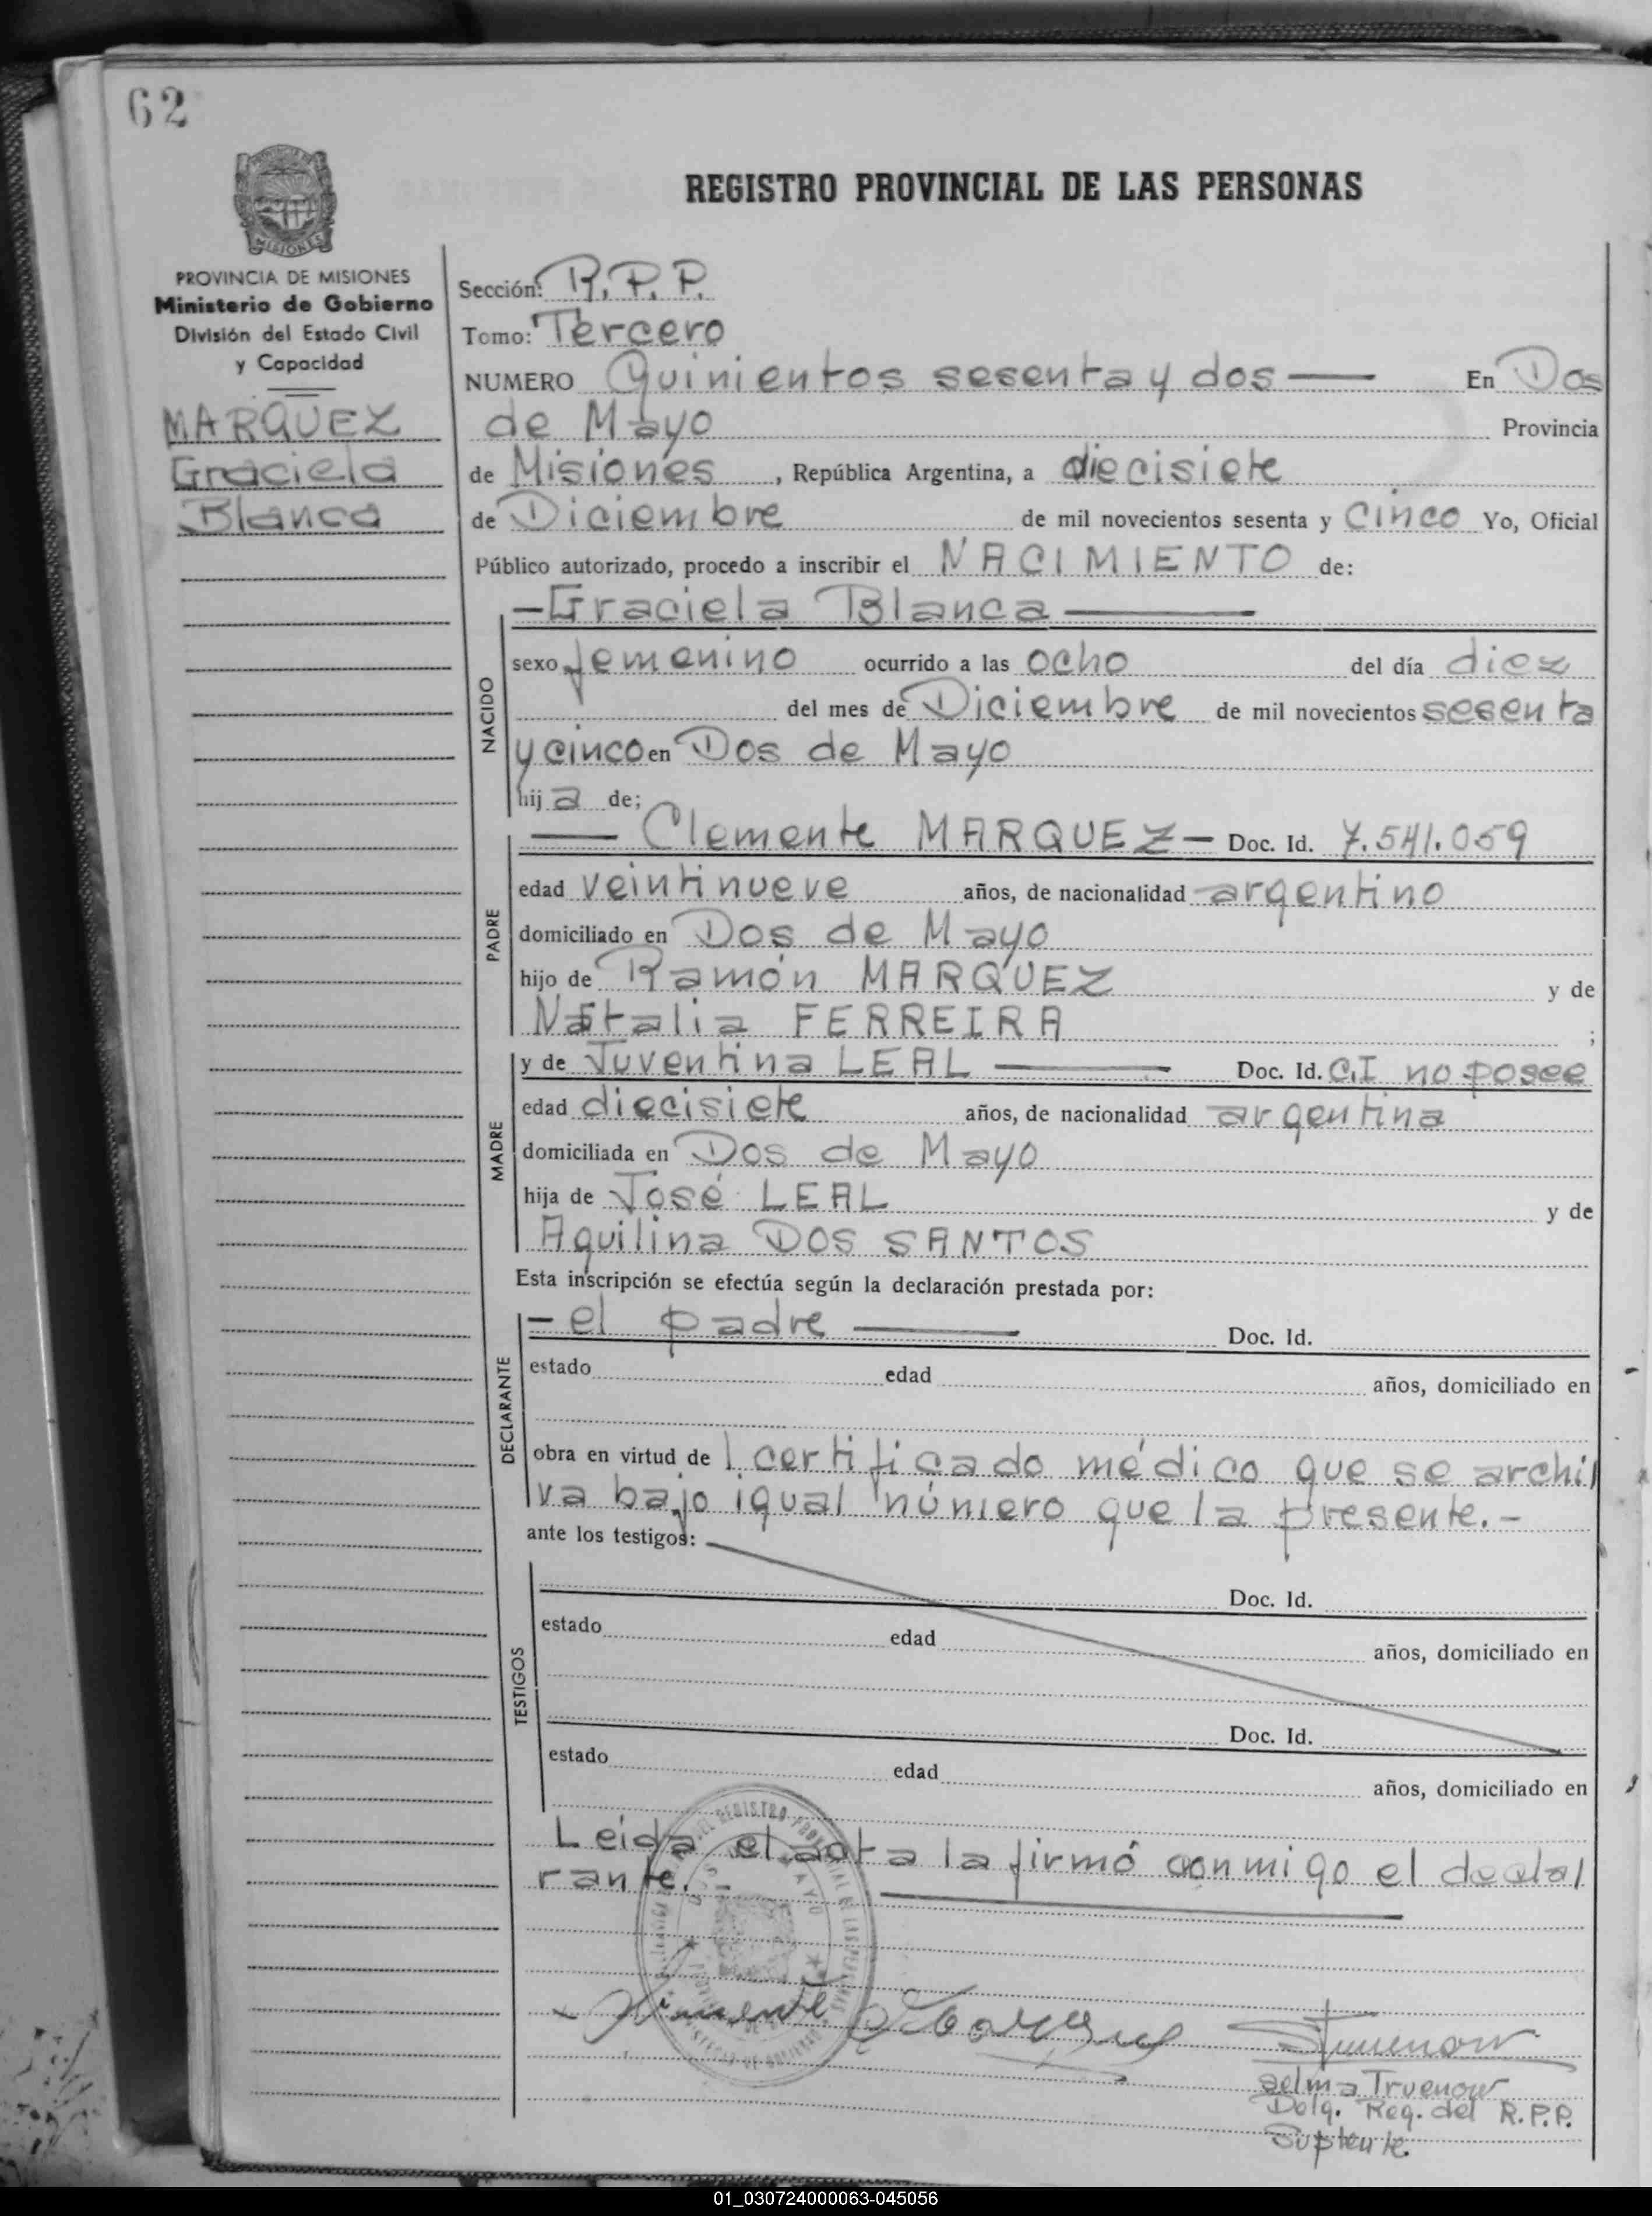 62
REGISTRO PROVINCIAL DE LAS PERSONAS
PROVINCIA DE MISIONES
Ministerio de Gobierno
División del Estado Civil
y Capacidad
MARQUEZ
Graciela
Blanca
Sección: R.P.P.
Tomo: Tercero
NUMERO Quinientos sesenta y dos — En Dos
de Mayo Provincia
de Misiones, República Argentina, a diecisiete
de Diciembre de mil novecientos sesenta y cinco Yo, Oficial
Público autorizado, procedo a inscribir el NACIMIENTO de:
—Graciela Blanca—
NACIDO
sexo femenino ocurrido a las ocho del día diez
del mes de Diciembre de mil novecientos sesenta
y cinco en Dos de Mayo
hija de;
PADRE
— Clemente MARQUEZ — Doc. Id. 7.541.059
edad veintinueve años, de nacionalidad argentino
domiciliado en Dos de Mayo
hijo de Ramón MARQUEZ y de
Natalia FERREIRA ;
MADRE
y de Juventina LEAL — Doc. Id. C.I no posee
edad diecisiete años, de nacionalidad argentina
domiciliada en Dos de Mayo
hija de José LEAL y de
Aquilina DOS SANTOS
Esta inscripción se efectúa según la declaración prestada por:
DECLARANTE
— el padre — Doc. Id.
estado edad años, domiciliado en
obra en virtud de l certificado médico que se archi/
va bajo igual número que la presente.-
ante los testigos:
TESTIGOS
Doc. Id.
estado edad años, domiciliado en
Doc. Id.
estado edad años, domiciliado en
Leida el acta la firmó conmigo el decla/
rante.-
Clemente Marquez
Truenow
Selma Truenow
Delg. Reg. del R.P.P.
Suplente.
01_030724000063-045056